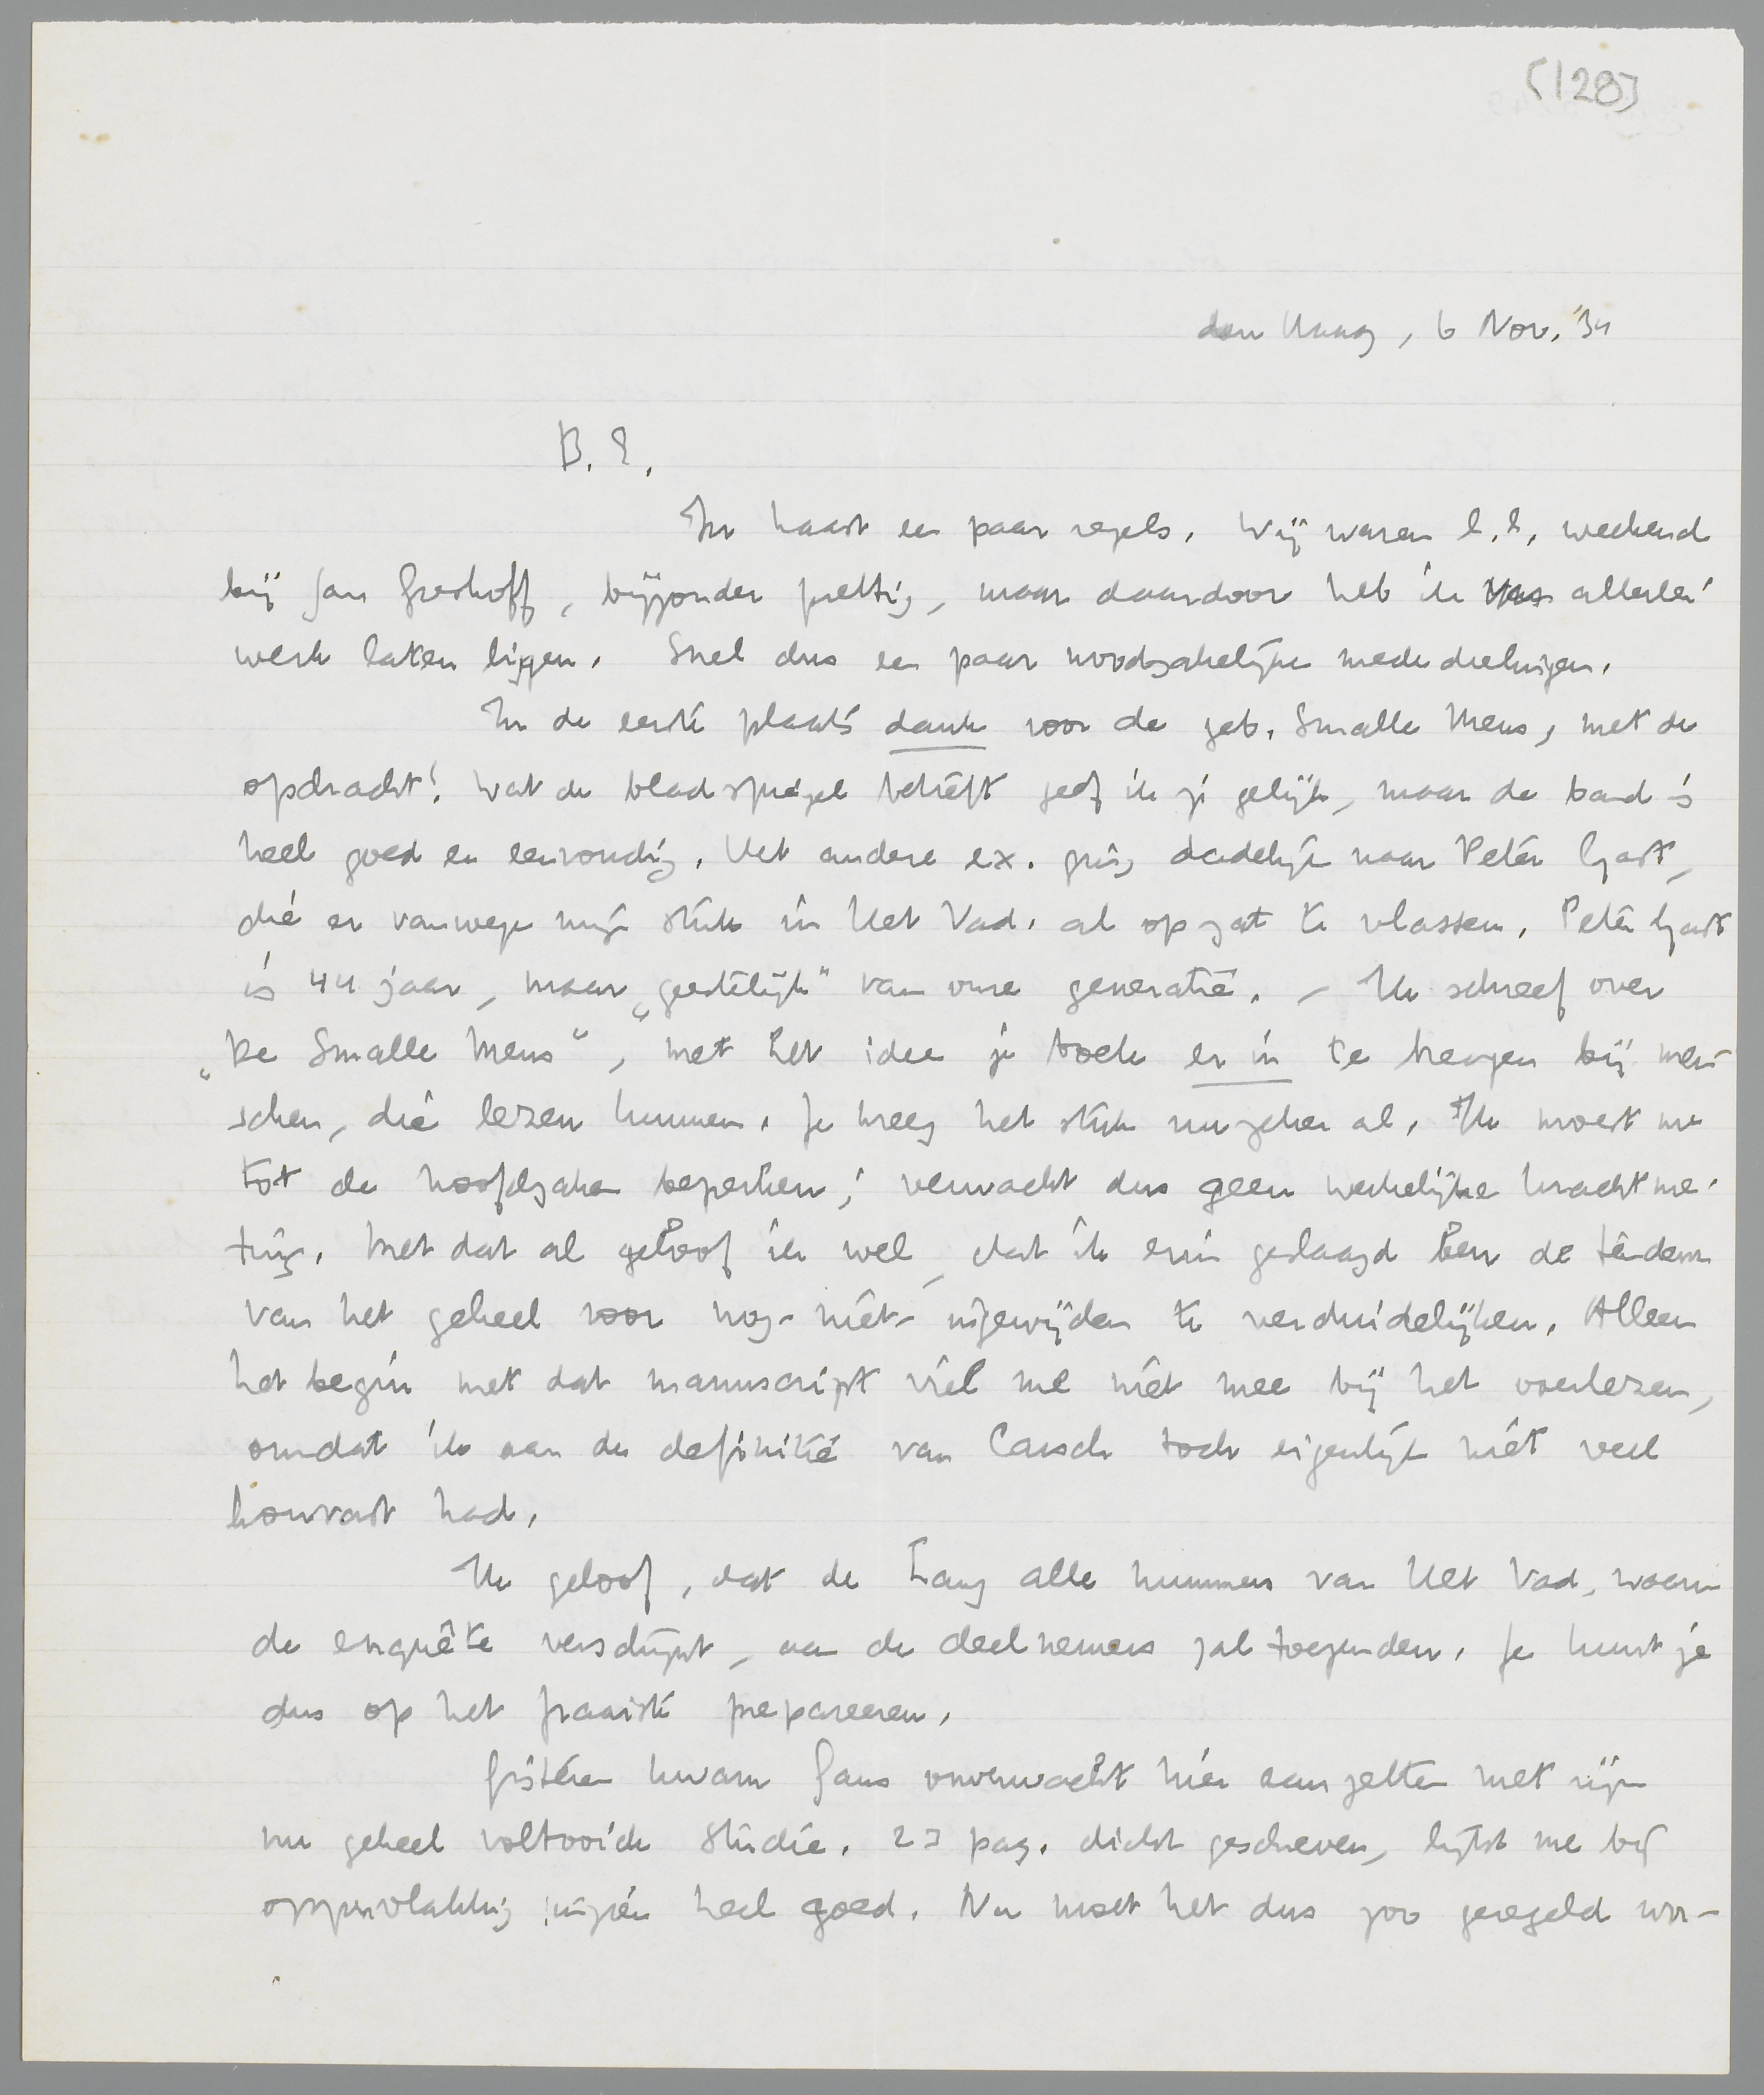 [128]
den Haag, 6 Nov. '34
B. E.
In haast een paar regels. Wij waren l.l. weekend
bij Jan Greshoff, bijzonder prettig, maar daardoor heb ik allerlei
werk laten liggen. Snel dus een paar noodzakelijke mededeelingen.
In de eerste plaats dank voor de geb. Smalle Mens, met de
opdracht! Wat de bladspiegel betreft geef ik je gelijk, maar de band is
heel goed en eenvoudig. Het andere ex. ging dadelijk naar Peter Gast,
die er vanwege mijn stuk in Het Vad. al op zat te vlassen. Peter Gast
is 44 jaar, maar „geestelijk" van onze generatie. - Ik schreef over
„De Smalle Mens", met het idee je boek er in te krijgen bij men-
schen, die lezen kunnen. Je kreeg het stuk nu zeker al. Ik moest me
tot de hoofdzaken beperken; verwacht dus geen werkelijke krachtme-
ting. Met dat al geloof ik wel, dat ik erin geslaagd ben de tendenz
van het geheel voor nog-niet-ingewijden te verduidelijken. Alleen
het begin met dat manuscript viel me niet mee bij het overlezen,
omdat ik aan de definitie van Carsch toch eigenlijk niet veel
houvast had.
Ik geloof, dat de Lang alle nummers van Het Vad. waarin
de enquête verschijnt, aan de deelnemers zal toezenden. Je kunt je
dus op het fraaiste prepareeren.
Gisteren kwam Gans onverwacht hier aanzetten met zijn
nu geheel voltooide studie. 23 pag. dicht geschreven, lijkt me bij
oppervlakkig inzien heel goed. Nu moet het dus zoo geregeld wor-